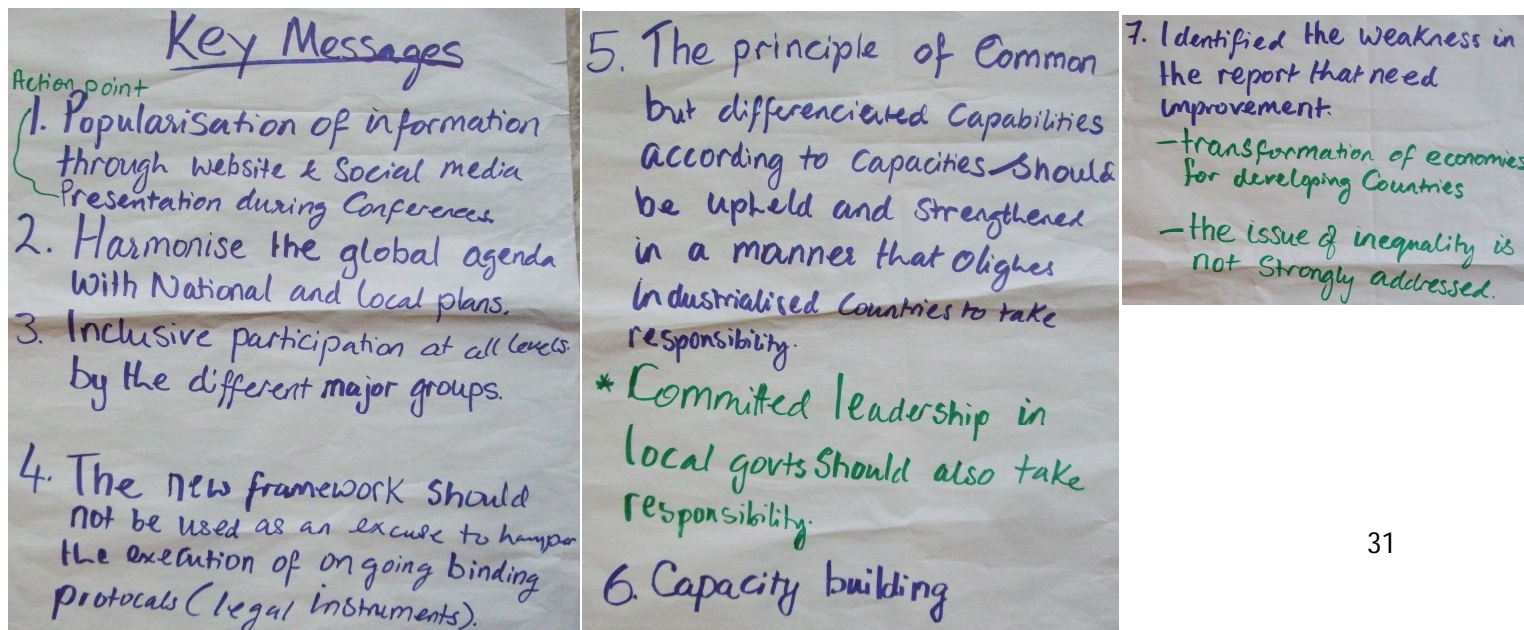 Key Messages
Action point
1. Popularisation of information
through website & Social media
Presentation during Conferences
2. Harmonise the global agenda
With National and local plans.
3. Inclusive participation at all levels.
by the different major groups.
4. The new framework should
not be used as an excuse to hamper
the execution of ongoing binding
protocals (legal instruments).
5. The principle of Common
but differenciated Capabilities
according to Capacities should
be upheld and strengthened
in a manner that olighes
industrialised Countries to take
responsibility.
* Committed leadership in
local govts Should also take
responsibility.
6. Capacity building
7. Identified the weakness in
the report that need
improvement.
- transformation of economies
for developing Countries
- the issue of inequality is
not Strongly addressed.
31